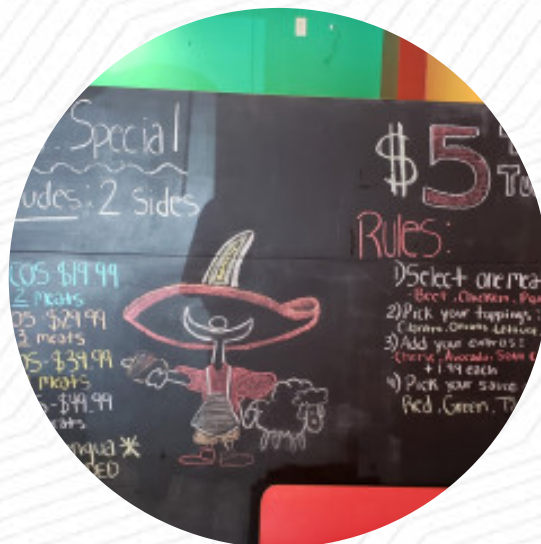 Special
udes: 2 Sides
COS $19.99
2 meats
OS $29.99
3 meats
OS-$39.99
meats
-$49.99
ngua *
DED
$5
Rules:
1) Select one meat
Beef, Chicken,
2) Pick your toppings:
Cilantro, Onions, Lettuce
3) Add your extras:
Cheese, Avocado, Sour
+1.99 each
4) Pick your sauce
Red, Green,